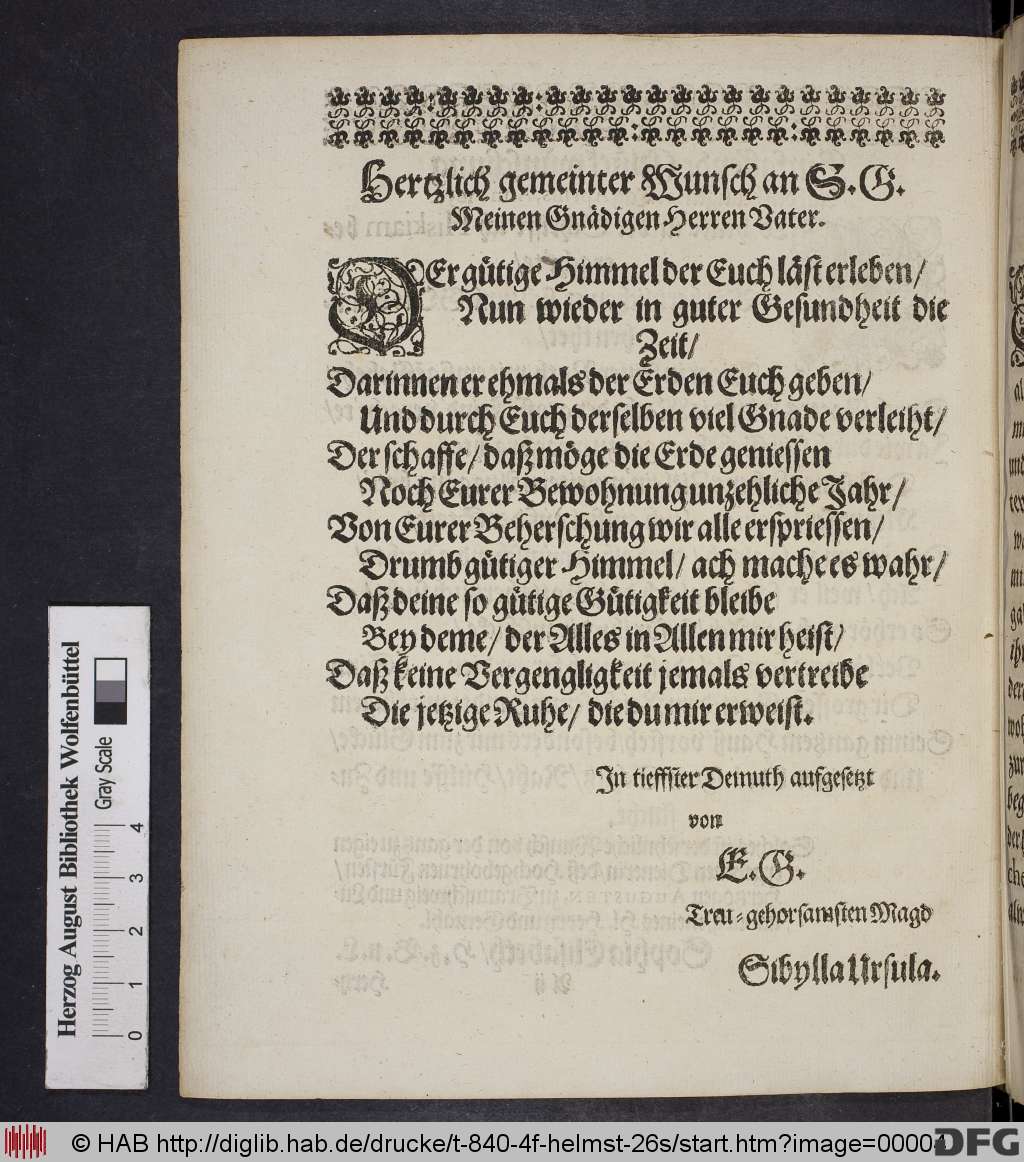 Hertzlich gemeinter Wunsch an S. G.
Meinen Gnädigen Herren Vater.
DEr gütige Himmel der Euch läst erleben/
Nun wieder in guter Gesundheit die
Zeit/
Darinnen er ehmals der Erden Euch geben/
Und durch Euch derselben viel Gnade verleiht/
Der schaffe/ daß möge die Erde geniessen
Noch Eurer Bewohnung unzehliche Jahr/
Von Eurer Beherschung wir alle erspriessen/
Drumb gütiger Himmel/ ach mache es wahr/
Daß deine so gütige Gütigkeit bleibe
Bey deme/ der Alles in Allen mir heist/
Daß keine Vergengligkeit jemals vertreibe
Die jetzige Ruhe/ die du mir erweist.
In tieffster Demuth aufgesetzt
von
E. G.
Treu-gehorsamsten Magd
Sibylla Ursula.
Herzog August Bibliothek Wolfenbüttel
Gray Scale
0 1 2 3 4
© HAB http://diglib.hab.de/drucke/t-840-4f-helmst-26s/start.htm?image=00004
DFG